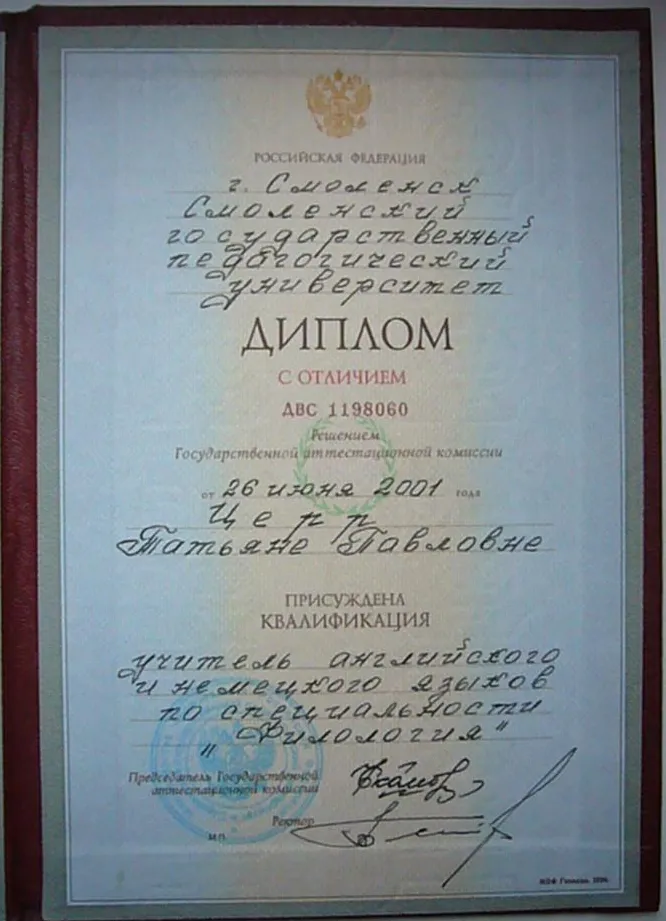 РОССИЙСКАЯ ФЕДЕРАЦИЯ
г. Смоленск
Смоленский
государственный
педагогический
университет
ДИПЛОМ
С ОТЛИЧИЕМ
ДВС 1198060
Решением
Государственной аттестационной комиссии
от 26 июня 2001 года
Церр
Татьяне Павловне
ПРИСУЖДЕНА
КВАЛИФИКАЦИЯ
учитель английского
и немецкого языков
по специальности
„Филология"
Председатель Государственной
аттестационной комиссии
Ректор
М.П.